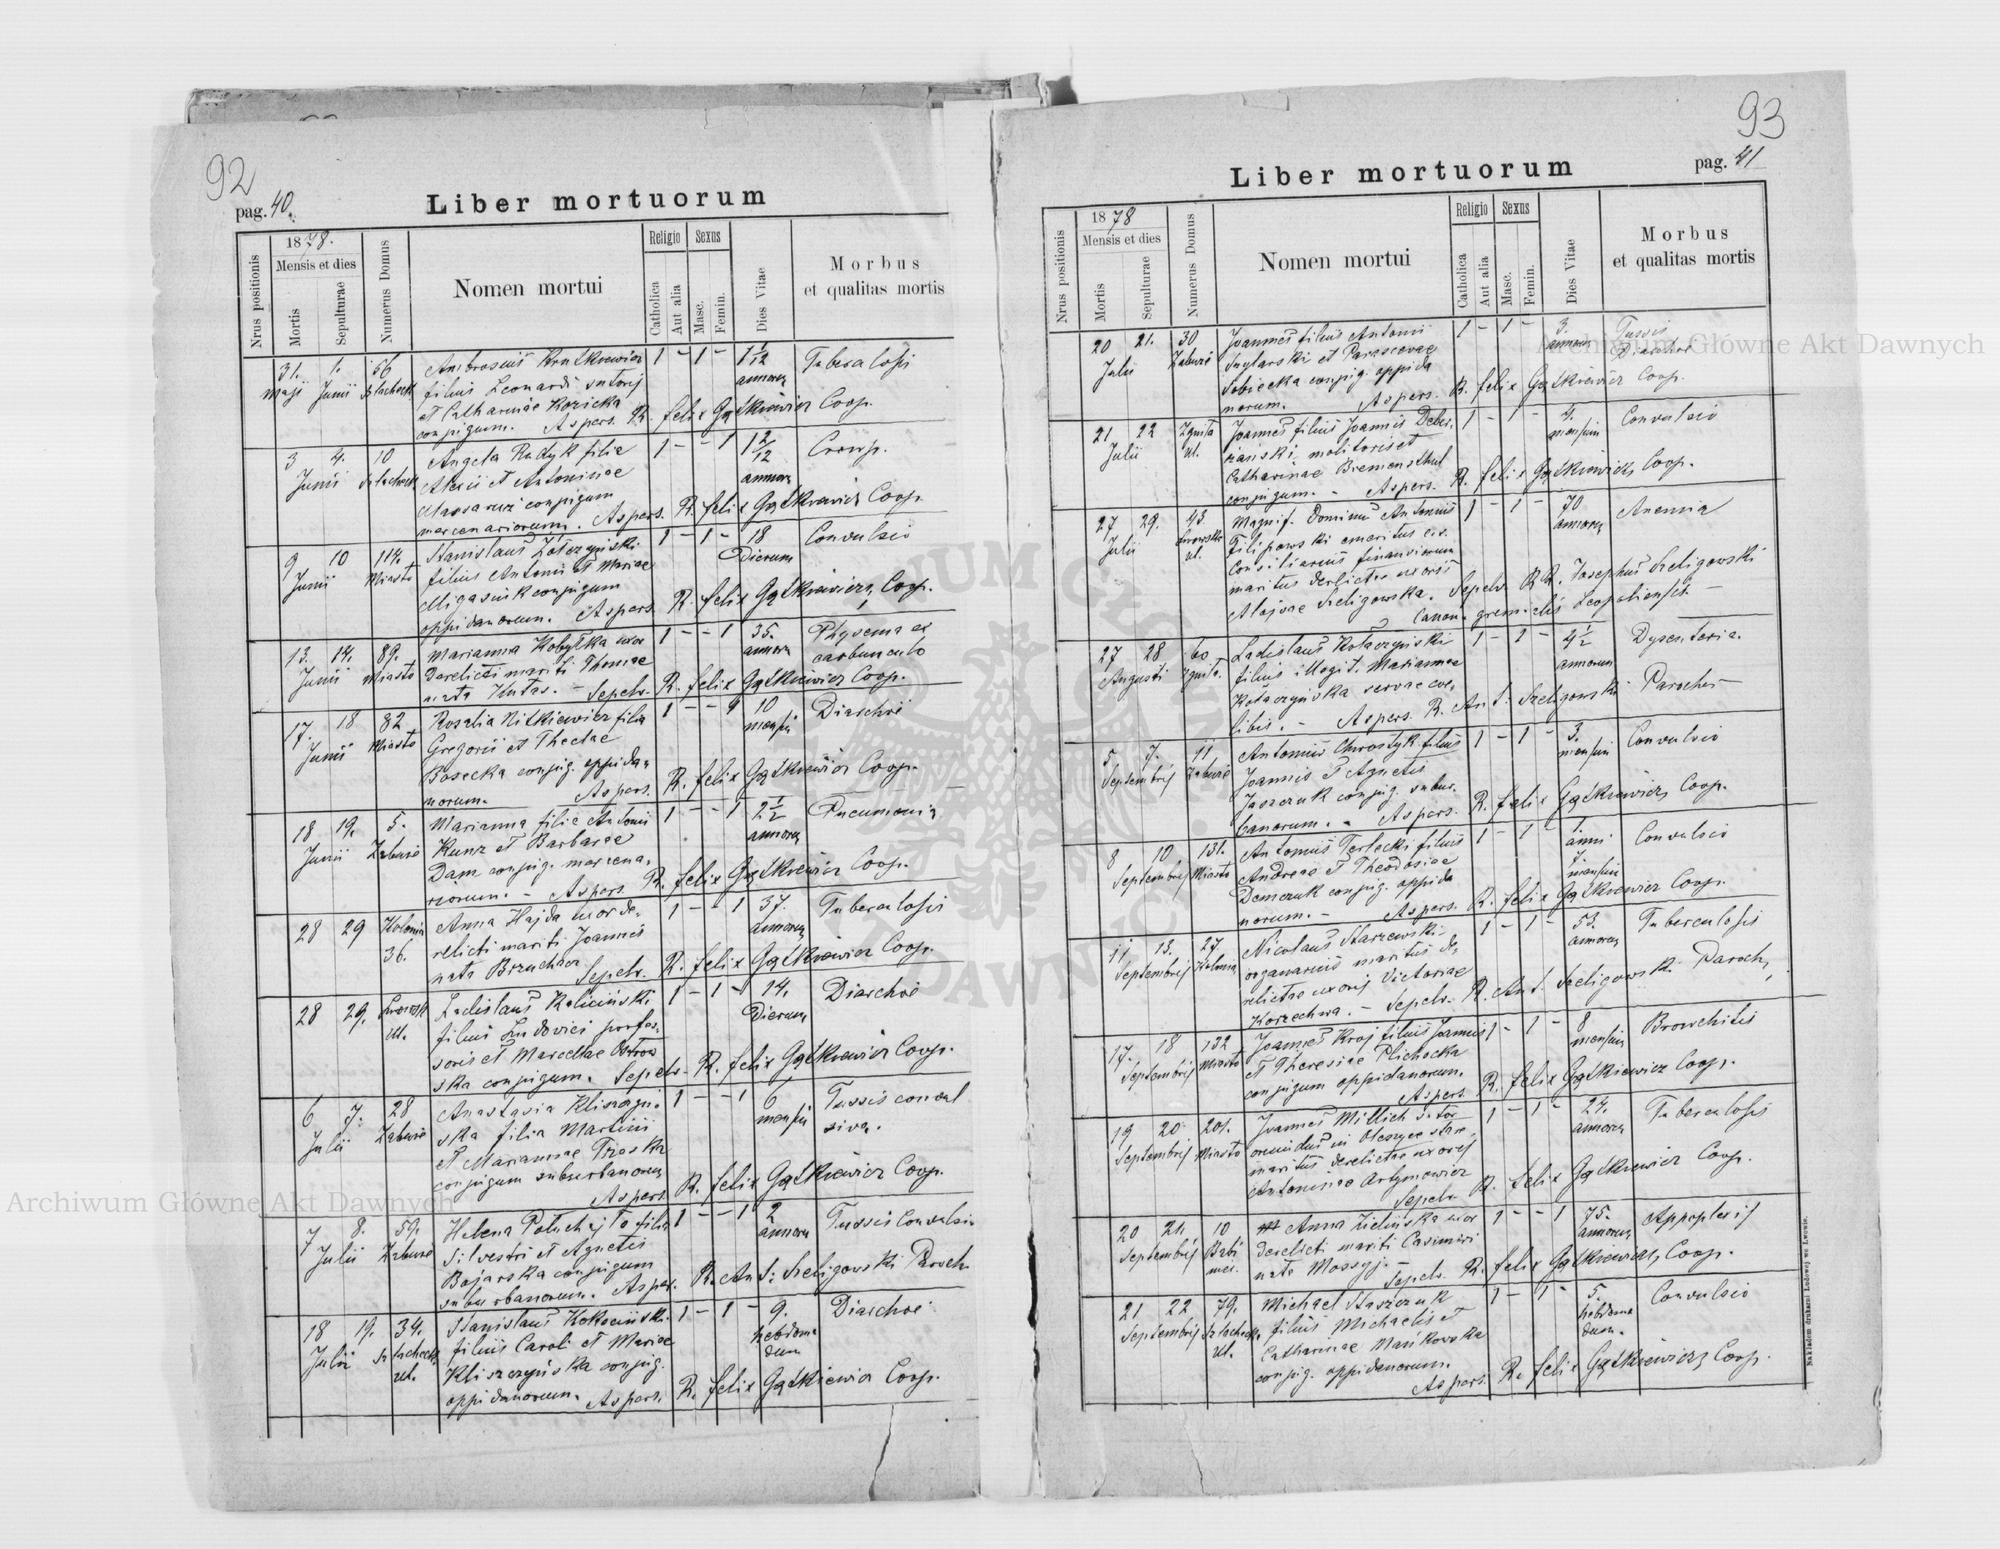 92
pag. 40.
Liber mortuorum
Nrus positionis
1878.
Mensis et dies
Mortis
Sepulturae
Numerus Domus
Nomen mortui
Religio
Catholica
Aut alia
Sexus
Masc.
Femin.
Dies Vitae
Morbus
et qualitas mortis
31. 1. 56 Ambrosius 1 - 1 - 1 1/12 Tuberculosis
Maji Junii filius Leonardi sutoris annorum
et Catharinae Kozicka
conjugum. Aspers. R. Felix Gątkiewicz Coop.
3 4. 10 Angela Rudyk filia 1 - - 1 1 2/12 Croup.
Junii Alexii et Antoninae annorum
conjugum
mercenariorum. Aspers. R. Felix Gątkiewicz Coop.
9 10 114. Stanislaus 1 - 1 - 18 Convulsio
Junii Miasto filius Antonii et Mariae Dierum
Migasiuk conjugum
oppidanorum. Aspers. R. Felix Gątkiewicz, Coop.
13. 14. 89. Marianna Kobyłka uxor 1 - - 1 35. Physema ex
Junii Miasto Derelicti mariti Thomae annorum carbunculo
nata Hutas. - Sepelv. R. Felix Gątkiewicz Coop.
17. 18 82 Rosalia Nitkiewicz filia 1 - - 1 10 Diarrhoe
Junii Miasto Gregorii et Theclae mensium
Bosecka conjug. oppida-
norum. Aspers. R. Felix Gątkiewicz Coop.
18 19. 5. Marianna filia Antonii 1 - - 1 2 1/2 Pneumonia
Junii Zabuże Kunz et Barbarae annorum
Dam conjug. mercena-
riorum. - Aspers. R. Felix Gątkiewicz Coop.
28 29 Kolonia Anna Hajda uxor de- 1 - - 1 37. Tuberculosis
36. relicti mariti Joannes annorum
nata Brzuchacz Sepelv. R. Felix Gątkiewicz Coop.
28 29. Lwowsk Ladislaus Kaliciński 1 - 1 - 14. Diarrhoe
ul. filius Ludovici profes- Dierum
soris et Marcellae Ostrow
ska conjugum. Sepelv. R. Felix Gątkiewicz Coop.
6 7. 28 Anastasia Kliszczyń- 1 - - 1 6 Tussis convul
Julii Zabuże ska filia Martini mensium siva.
et Mariannae
conjugum suburbanorum
Aspers. R. Felix Gątkiewicz Coop.
7 8. 59. Helena filia 1 - - 1 2 Tussis Convulsiv
Julii Zabuże Silvestri et Agnetis annorum
Bojarska conjugum
suburbanorum. Aspers. R. Ant: Szeligowski Paroch.
18 19. 34. Stanislaus Kokociński 1 - 1 - 9. Diarrhoe
Julii ul. filius Caroli et Mariae hebdoma
Kliszczyńska conjug. dum
oppidanorum. Aspers. R. Felix Gątkiewicz Coop.
93
Liber mortuorum
pag. 41
Nrus positionis
1878
Mensis et dies
Mortis
Sepulturae
Numerus Domus
Nomen mortui
Religio
Catholica
Aut alia
Sexus
Masc.
Femin.
Dies Vitae
Morbus
et qualitas mortis
20 21. 30 Joannes filius Antonii 1 - 1 - 3. Tussis
Julii Zabuże et Parascevae annorum Diarrhoe
Sobiecka conjug. oppida
norum. Aspers. R. Felix Gątkiewicz Coop.
21 22 Zgniła Joannes filius Joannis 1 - 1 - 4. Convulsio
Julii ul. molitoris et mensium
Catharinae
conjugum. - Aspers. R. Felix Gątkiewicz, Coop.
27 29. 43. Magnif. Dominus Antonius 1 - 1 - 70 Anemia
Julii Lwowska Filipowski emeritus c.r. annorum
ul. Consiliarius finansiarum
maritus derelictae uxoris
Alojsae Szeligowska. Sepelv. RR. Josephus Szeligowski
Canon. gremialis Leopoliensis.
27 28 60 Ladislaus Kołaczyński 1 - 1 - 4 1/2 Dysenteria.
Augusti Zgniła. filius illegit. Mariannae annorum
Kołaczyńska servae coe-
libis. - Aspers. R. Ant. Szeligowski Parochus
5 7. 11 Antonius Chrostyk filius 1 - 1 - 3. Convulsio
Septembris Zabuże Joannis et Agnetis mensium
Jaszczuk conjug. subur-
banorum. - Aspers. R. Felix Gątkiewicz, Coop.
8 10 131. Antonius Terlecki filius 1 - 1 - 1 anni Convulsio
Septembris Miasto Andreae et Theodosiae 7. mensium
Demczuk conjug. oppida
norum. - Aspers. R. Felix Gątkiewicz Coop.
11 13. 27 Nicolaus Starzewski 1 - 1 - 53. Tuberculosis
Septembris Kolonia organarius maritus de- annorum
relictae uxoris Victoriae
Korzechwa. - Sepelv. R. Ant. Szeligowski Paroch,
17. 18 132 Joannes Kroj filius Joannis 1 - 1 - 8 Bronchitis
Septembris Miasto et Theresiae Plichocka mensium
conjugum oppidanorum.
Aspers. R. Felix Gątkiewicz Coop.
19 20 201. Joannes Mittich sutor 1 - 1 - 24. Tuberculosis
Septembris Miasto oriundus in annorum
maritus derelictae uxoris
Antoninae Artymowicz
Sepelv. R. Felix Gątkiewicz Coop.
20 21. 10 Anna Zielińska uxor 1 - - 1 75. Apoplexis
Septembris derelicti mariti Casimiri annorum
nata Sepelv. R. Felix Gątkiewicz, Coop.
21 22 79. Michael Staszczuk 1 - 1 - 5. Convulsio
Septembris ul. filius Michaelis et hebdoma
Catharinae Mańkowska dum.
conjug. oppidanorum.
Aspers. R. Felix Gątkiewicz, Coop.
Nakładem drukarni Ludowej we Lwowie.
Archiwum Główne Akt Dawnych
Archiwum Główne Akt Dawnych
ARCHIWUM GŁÓWNE AKT DAWNYCH